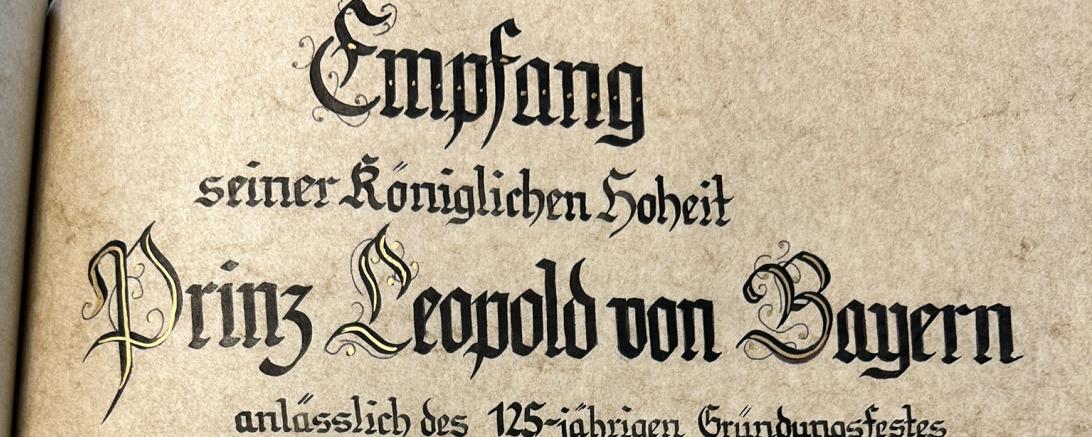 Empfang
seiner Königlichen Hoheit
Prinz Leopold von Bayern
anlässlich des 125-jährigen Gründungsfestes